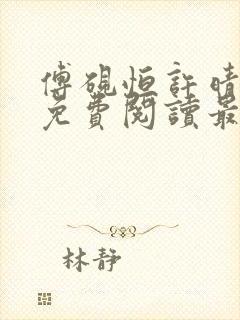 傅硯恒許晴
免費閱讀最
林靜